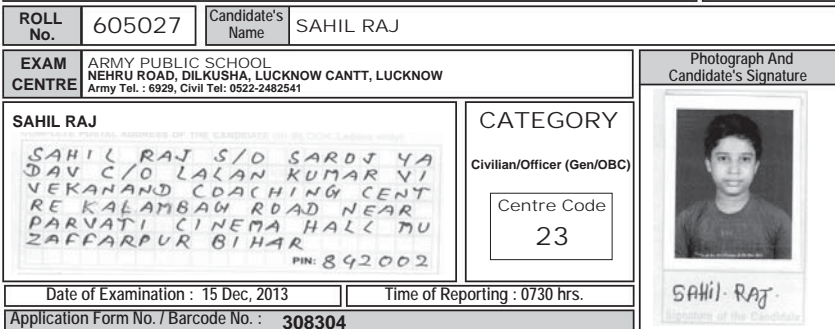 ROLL No. 605027 Candidate's Name SAHIL RAJ
EXAM CENTRE ARMY PUBLIC SCHOOL
NEHRU ROAD, DILKUSHA, LUCKNOW CANTT, LUCKNOW
Army Tel. : 6929, Civil Tel: 0522-2482541
Photograph And
Candidate's Signature
SAHIL RAJ
COMPLETE POSTAL ADDRESS OF THE CANDIDATE (in BLOCK Letters only)
SAHIL RAJ S/O SAROJ YA
DAV C/O LALAN KUMAR VI
VEKANAND COACHING CENT
RE KALAMBAGH ROAD NEAR
PARVATI CINEMA HALL MU
ZAFFARPUR BIHAR
PIN: 842002
CATEGORY
Civilian/Officer (Gen/OBC)
Centre Code
23
SAHil. RAJ.
Signature of the Candidate
Date of Examination : 15 Dec, 2013 Time of Reporting : 0730 hrs.
Application Form No. / Barcode No. : 308304